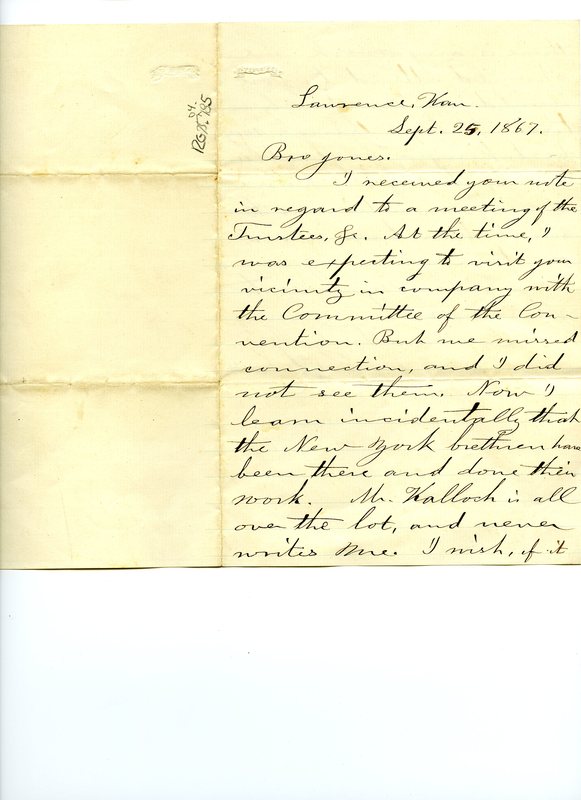 Lawrence, Kan.
Sept. 25, 1867.
Bro Jones.
I received your note
in regard to a meeting of the
Trustees, &c. At the time, I
was expecting to visit your
vicinity in company with
the Committee of the Con-
vention. But we missed
connection, and I did
not see them. Now I
learn incidentally that
the New York brethren have
been there and done their
work. Mr. Kalloch is all
over the lot, and never
writes me. I wish, if it